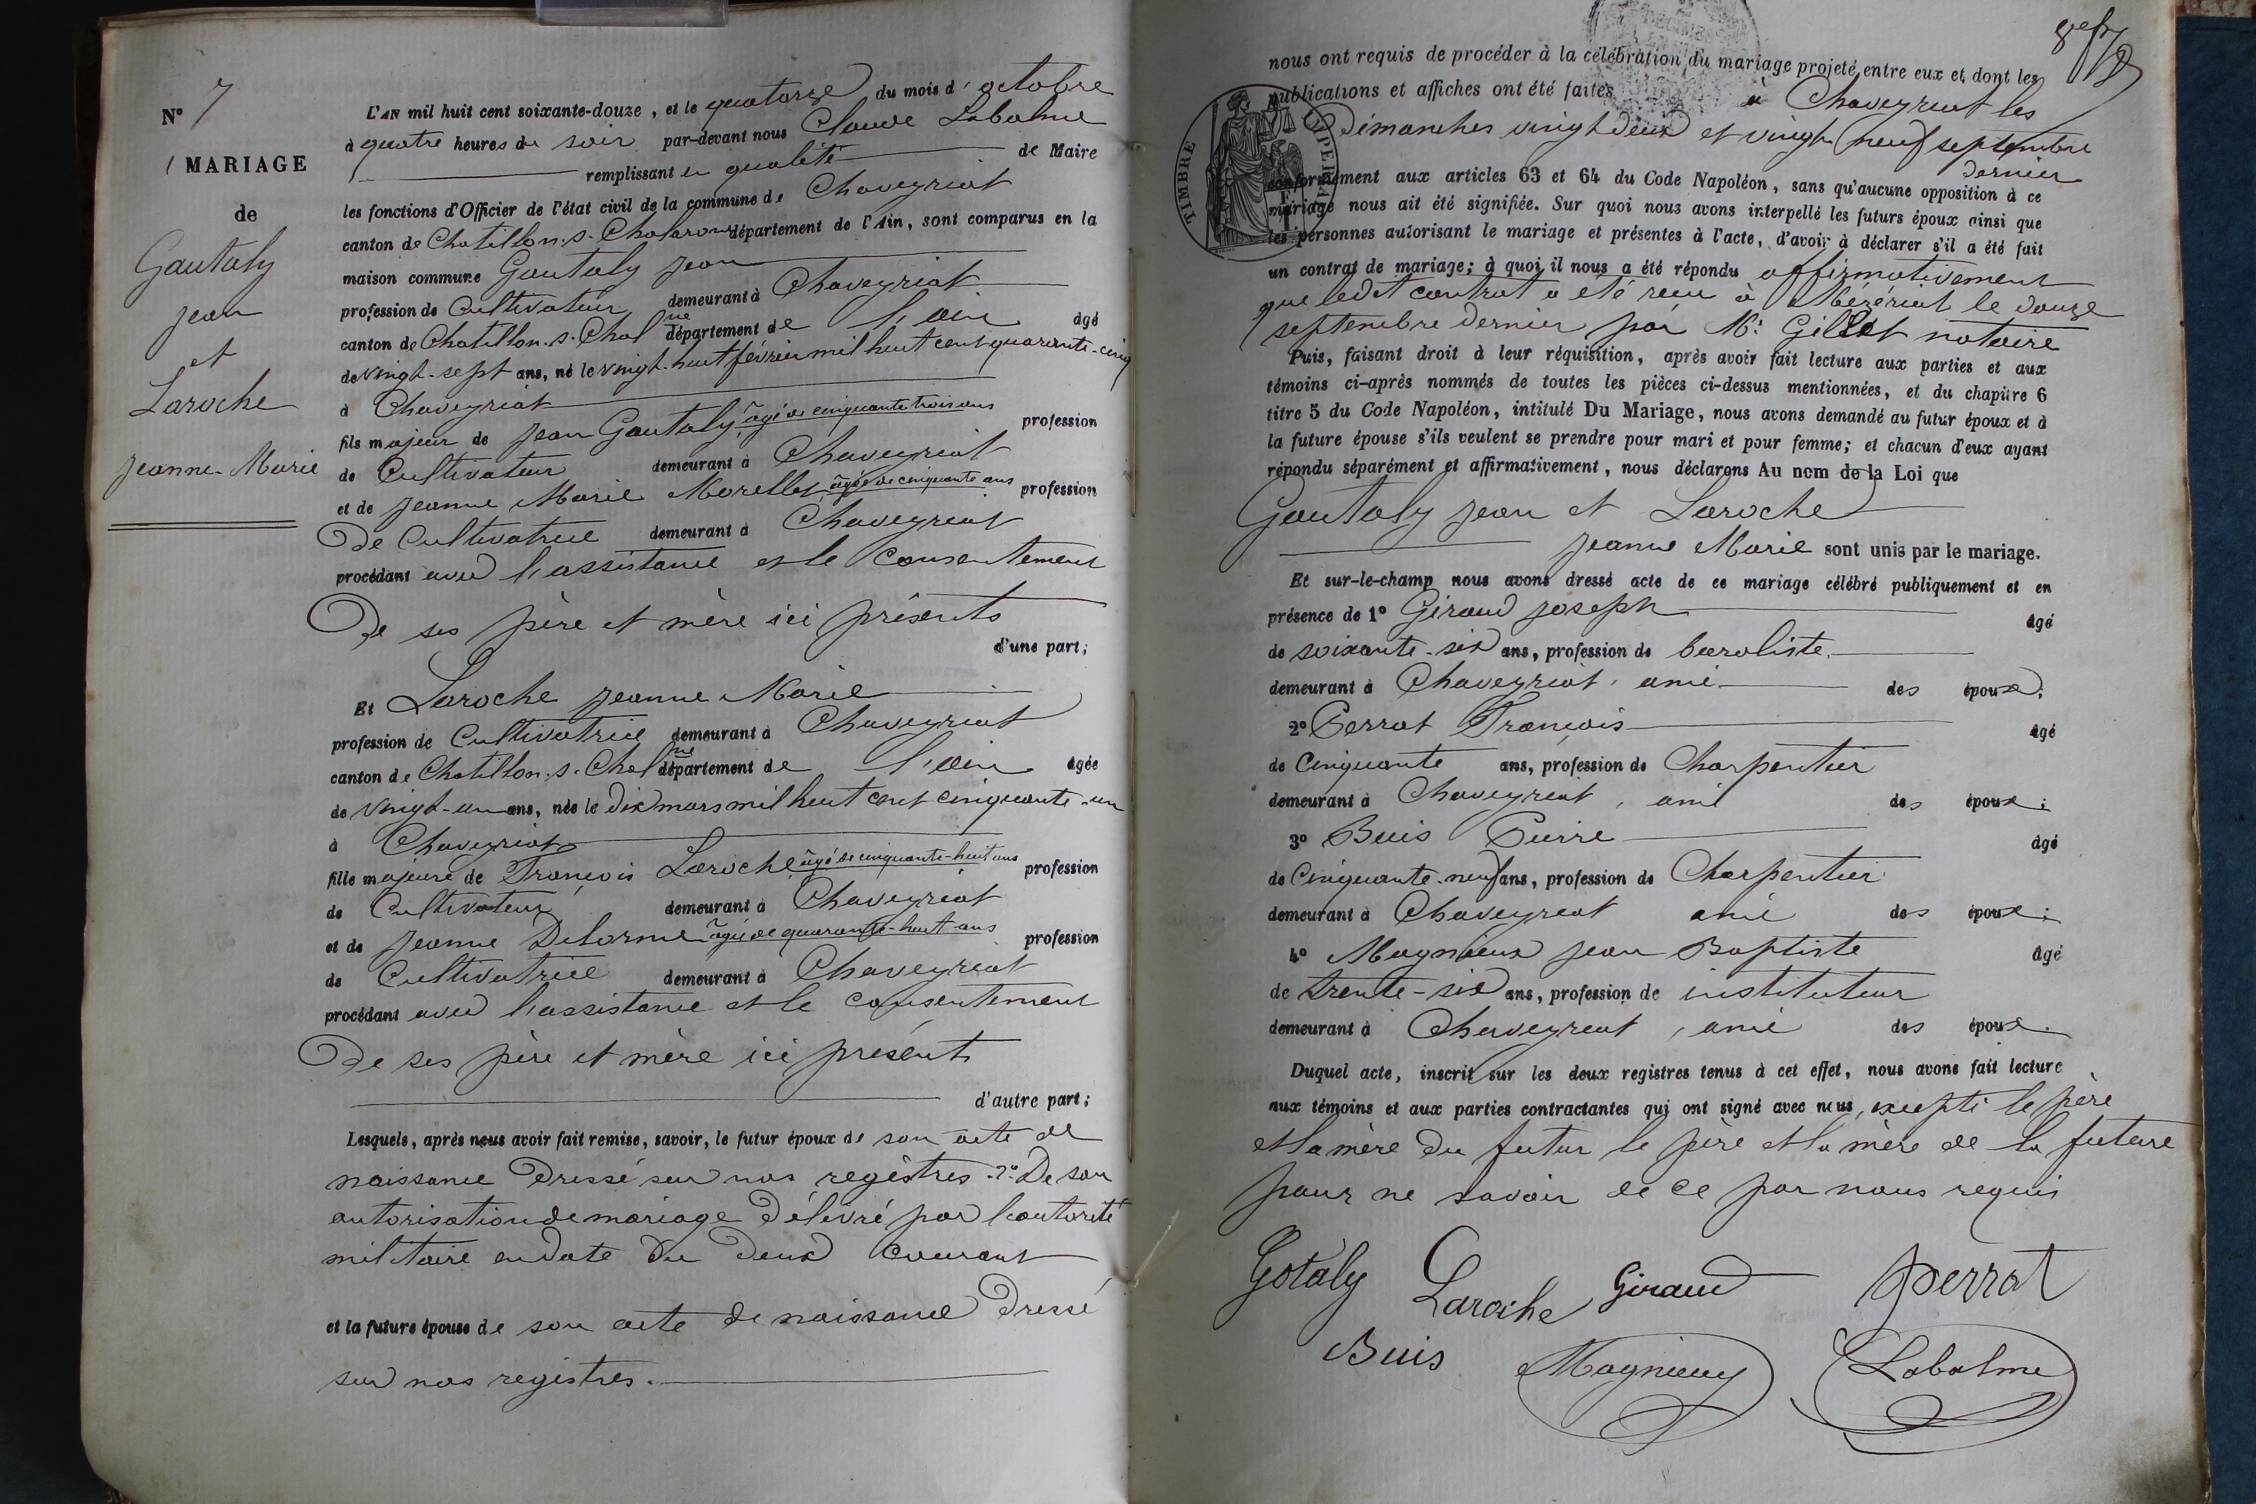 N° 7
MARIAGE
de
Gautaly
Jean
et
Laroche
Jeanne-Marie
L'AN mil huit cent soixante-douze, et le quatorze du mois d'octobre
à quatre heures du soir par-devant nous Claude Labalme
remplissant en qualité de Maire
les fonctions d'Officier de l'état civil de la commune de Chaveyriat
canton de Chatillon-s-Chalaronne département de l'Ain, sont comparus en la
maison commune Gautaly Jean
profession de Cultivateur demeurant à Chaveyriat
canton de Chatillon-s-Chalne département de l'ain âgé
de vingt-sept ans, né le vingt-huit février mil huit cent quarante-cinq
à Chaveyriat
fils majeur de Jean Gautaly, âgé de cinquante trois ans profession
de Cultivateur demeurant à Chaveyriat
et de Jeanne Marie Morellet âgée de cinquante ans profession
De Cultivatrice demeurant à Chaveyriat
procédant avec l'assistance et le consentement
De ses père et mère ici présents
d'une part;
Et Laroche Jeanne Marie
profession de Cultivatrice demeurant à Chaveyriat
canton de Chatillon-s-Chalne département de l'ain âgée
de vingt-un ans, née le Dix mars mil huit cent cinquante-un
à Chaveyriat
fille majeure de François Laroche, âgé de cinquante-huit ans profession
de Cultivateur demeurant à Chaveyriat
et de Jeanne Delorme âgée de quarante-huit ans profession
de Cultivatrice demeurant à Chaveyriat
procédant avec l'assistance et le consentement
De ses père et mère ici présents
d'autre part;
Lesquels, après nous avoir fait remise, savoir, le futur époux de son acte de
naissance Dressé sur nos registres. 2° De son
autorisation de mariage Délivré par l'autorité
militaire en date du deux courant
et la future épouse de son acte de naissance Dressé
sur nos registres.
nous ont requis de procéder à la célébration du mariage projeté entre eux et dont les
publications et affiches ont été faites à Chaveyriat les
Dimanches vingt deux et vingt neuf septembre
dernier
conformément aux articles 63 et 64 du Code Napoléon, sans qu'aucune opposition à ce
mariage nous ait été signifiée. Sur quoi nous avons interpellé les futurs époux ainsi que
les personnes autorisant le mariage et présentes à l'acte, d'avoir à déclarer s'il a été fait
un contrat de mariage; à quoi il nous a été répondu affirmativement
que ledit contrat a été reçu à Mézériat le douze
septembre dernier par Me Gillet notaire
Puis, faisant droit à leur réquisition, après avoir fait lecture aux parties et aux
témoins ci-après nommés de toutes les pièces ci-dessus mentionnées, et du chapitre 6
titre 5 du Code Napoléon, intitulé Du Mariage, nous avons demandé au futur époux et à
la future épouse s'ils veulent se prendre pour mari et pour femme; et chacun d'eux ayant
répondu séparément et affirmativement, nous déclarons Au nom de la Loi que
Gautaly Jean et Laroche
Jeanne Marie sont unis par le mariage.
Et sur-le-champ nous avons dressé acte de ce mariage célébré publiquement et en
présence de 1° Giraud Joseph âgé
de soixante-six ans, profession de buraliste
demeurant à Chaveyriat, ami des époux;
2° Perrat François âgé
de Cinquante ans, profession de Charpentier
demeurant à Chaveyriat, ami des époux;
3° Buis Pierre âgé
de Cinquante-neuf ans, profession de Charpentier
demeurant à Chaveyriat ami des époux;
4° Magnieux Jean Baptiste âgé
de Trente-six ans, profession de instituteur
demeurant à Chaveyriat, ami des époux.
Duquel acte, inscrit sur les deux registres tenus à cet effet, nous avons fait lecture
aux témoins et aux parties contractantes qui ont signé avec nous, excepté le père
et la mère du futur le père et la mère de la future
pour ne savoir de ce par nous requis
Gotaly Laroche Giraud Perrat
Buis Magnieux Labalme
TIMBRE IMPERIAL